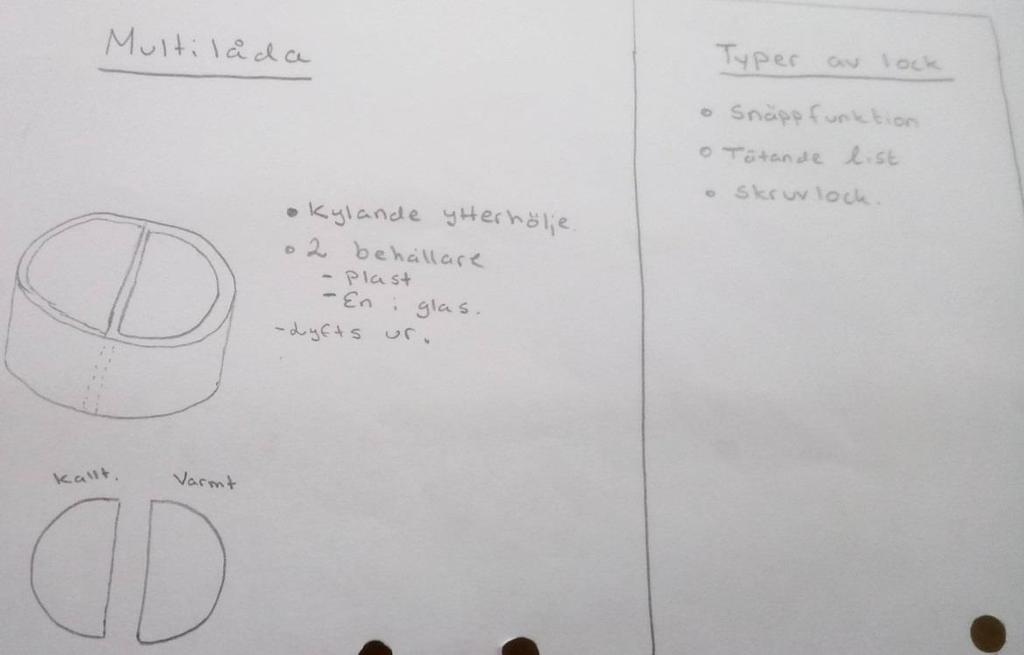 Multilåda
• Kylande ytterhölje.
• 2 behållare
- Plast
- En i glas.
- Lyfts ur.
Kallt.
Varmt
Typer av lock
• Snäppfunktion
• Tätande list
• Skruvlock.